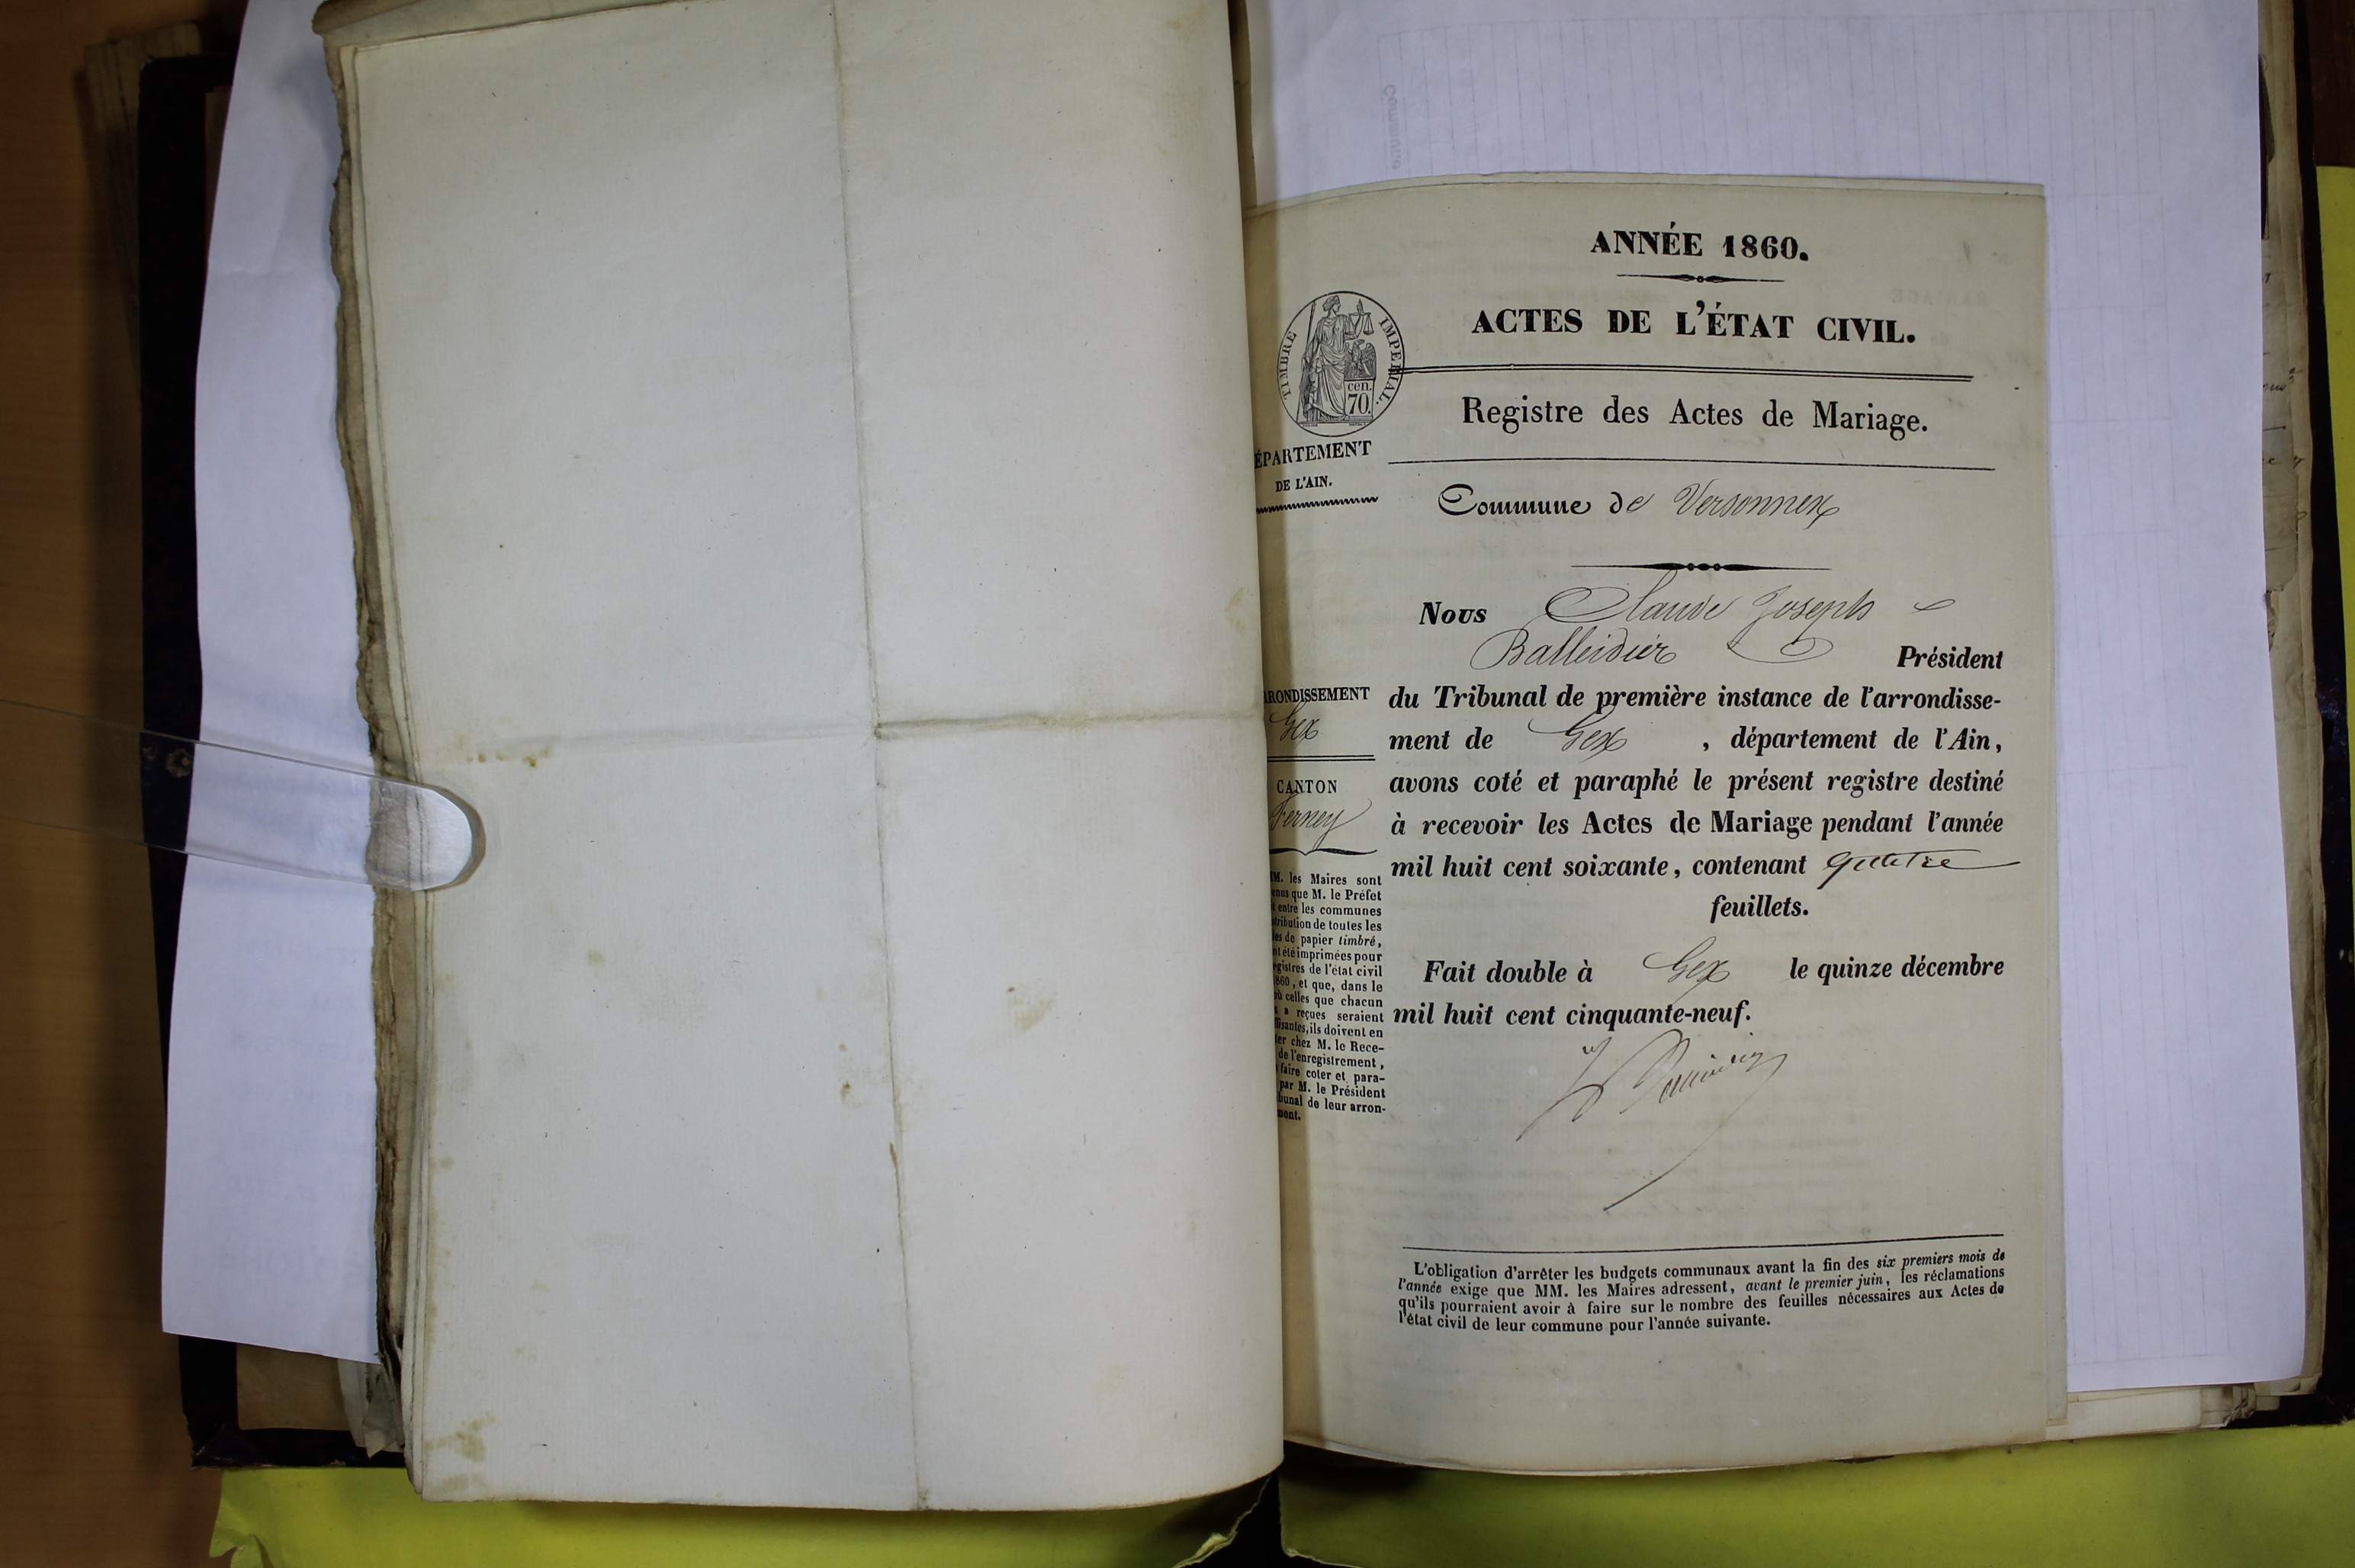 ANNÉE 1860.
ACTES DE L'ÉTAT CIVIL.
TIMBRE IMPERIAL.
cen.
70.
Registre des Actes de Mariage.
ÉPARTEMENT
DE L'AIN.
Commune de Versonnex
Nous Claude Joseph
Balleidier Président
RRONDISSEMENT
Gex
CANTON
Ferney
du Tribunal de première instance de l'arrondisse-
ment de Gex , département de l'Ain,
avons coté et paraphé le présent registre destiné
à recevoir les Actes de Mariage pendant l'année
mil huit cent soixante, contenant quatre
feuillets.
Fait double à Gex le quinze décembre
mil huit cent cinquante-neuf.
M. les Maires sont
enus que M. le Préfet
t entre les communes
tribution de toutes les
les de papier timbré,
nt été imprimées pour
egistres de l'état civil
860, et que, dans le
où celles que chacun
x a reçues seraient
ffisantes, ils doivent en
ter chez M. le Rece-
de l'enregistrement,
faire coter et para-
par M. le Président
bunal de leur arron-
ment.
L'obligation d'arrêter les budgets communaux avant la fin des six premiers mois de
l'année exige que MM. les Maires adressent, avant le premier juin, les réclamations
qu'ils pourraient avoir à faire sur le nombre des feuilles nécessaires aux Actes de
l'état civil de leur commune pour l'année suivante.